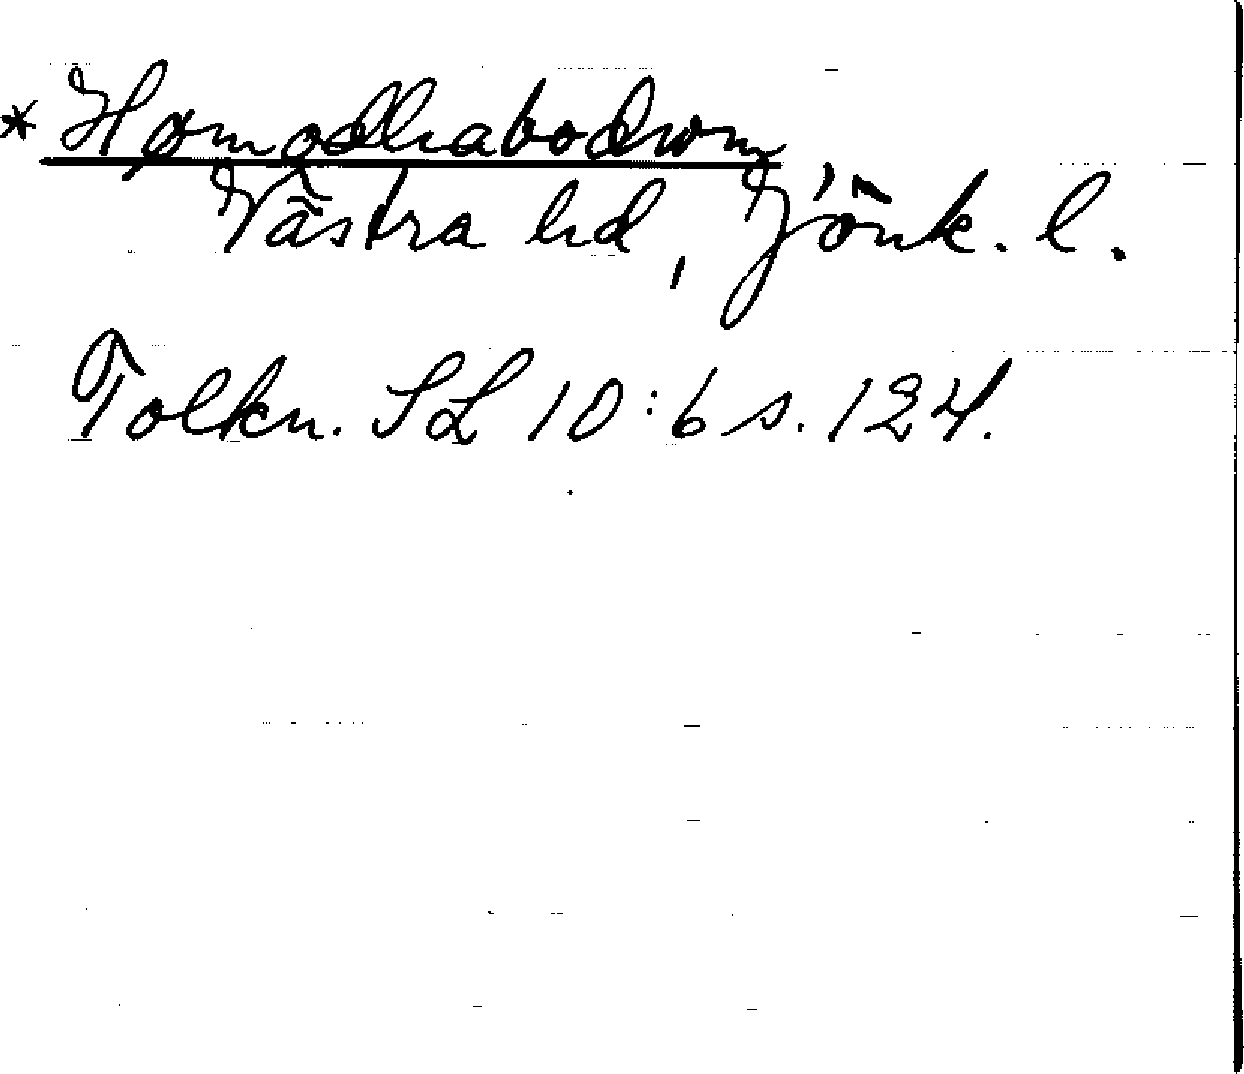 * Hømodhabodhum,
Västra hd, Jönk. l.
Tolkn. SL 10:6 s. 124.